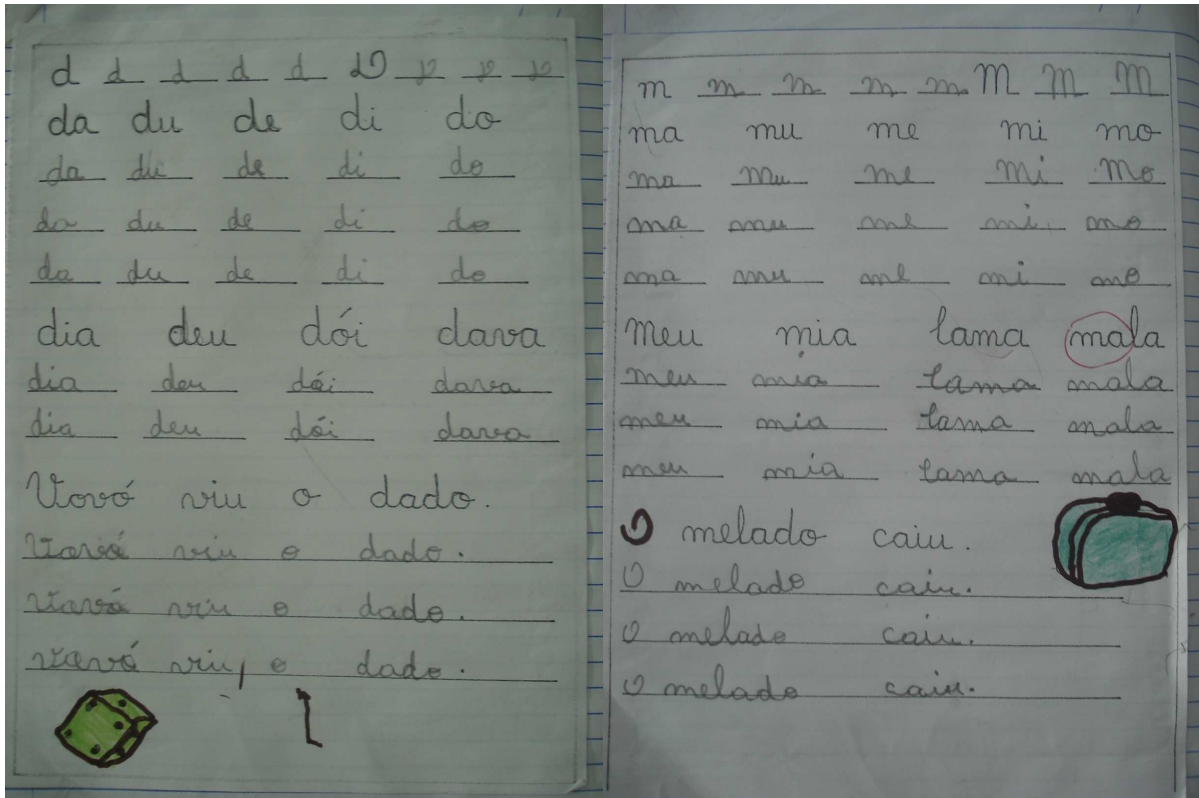 d d d d d D D D D
da du de di do
da du de di do
da du de di do
da du de di do
dia deu dói dava
dia deu dói dava
dia deu dói dava
Vovó viu o dado.
Vavá viu o dado.
Vavá viu o dado.
Vavá viu o dado.
m m m m m M M M
ma mu me mi mo
ma mu me mi mo
ma mu me mi mo
ma mu me mi mo
meu mia lama mala
meu mia lama mala
meu mia lama mala
meu mia lama mala
O melado caiu.
O melado caiu.
O melado caiu.
O melado caiu.